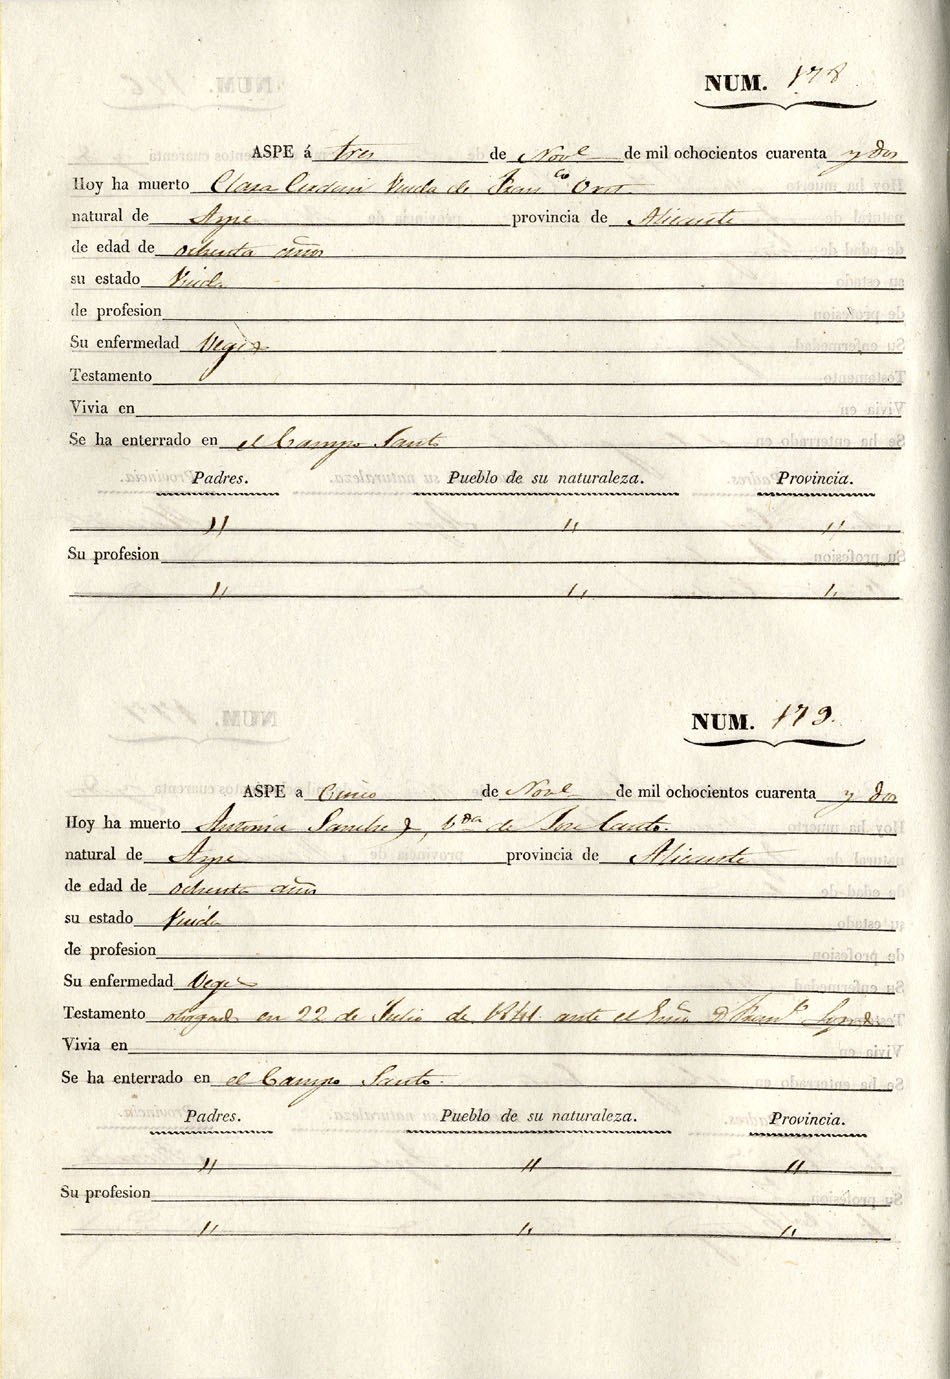 NUM. 178
ASPE á tres de Nov.e de mil ochocientos cuarenta y dos
Hoy ha muerto Clara Viuda de Fran.co
natural de Aspe provincia de Alicante
de edad de ochenta años
su estado Viuda
de profesion
Su enfermedad Vegez
Testamento
Vivia en
Se ha enterrado en el Campo Santo
Padres. Pueblo de su naturaleza. Provincia.
" " "
Su profesion
" " "
NUM. 179.
ASPE a Cinco de Nov.e de mil ochocientos cuarenta y dos
Hoy ha muerto Antonia Sanchez, v.da de Jose Canto.
natural de Aspe provincia de Alicante
de edad de ochenta años
su estado Viuda
de profesion
Su enfermedad Vegez
Testamento otorgado en 22 de Julio de 1841 ante el Esño D. Fran.co
Vivia en
Se ha enterrado en el Campo Santo.
Padres. Pueblo de su naturaleza. Provincia.
" " "
Su profesion
" " "